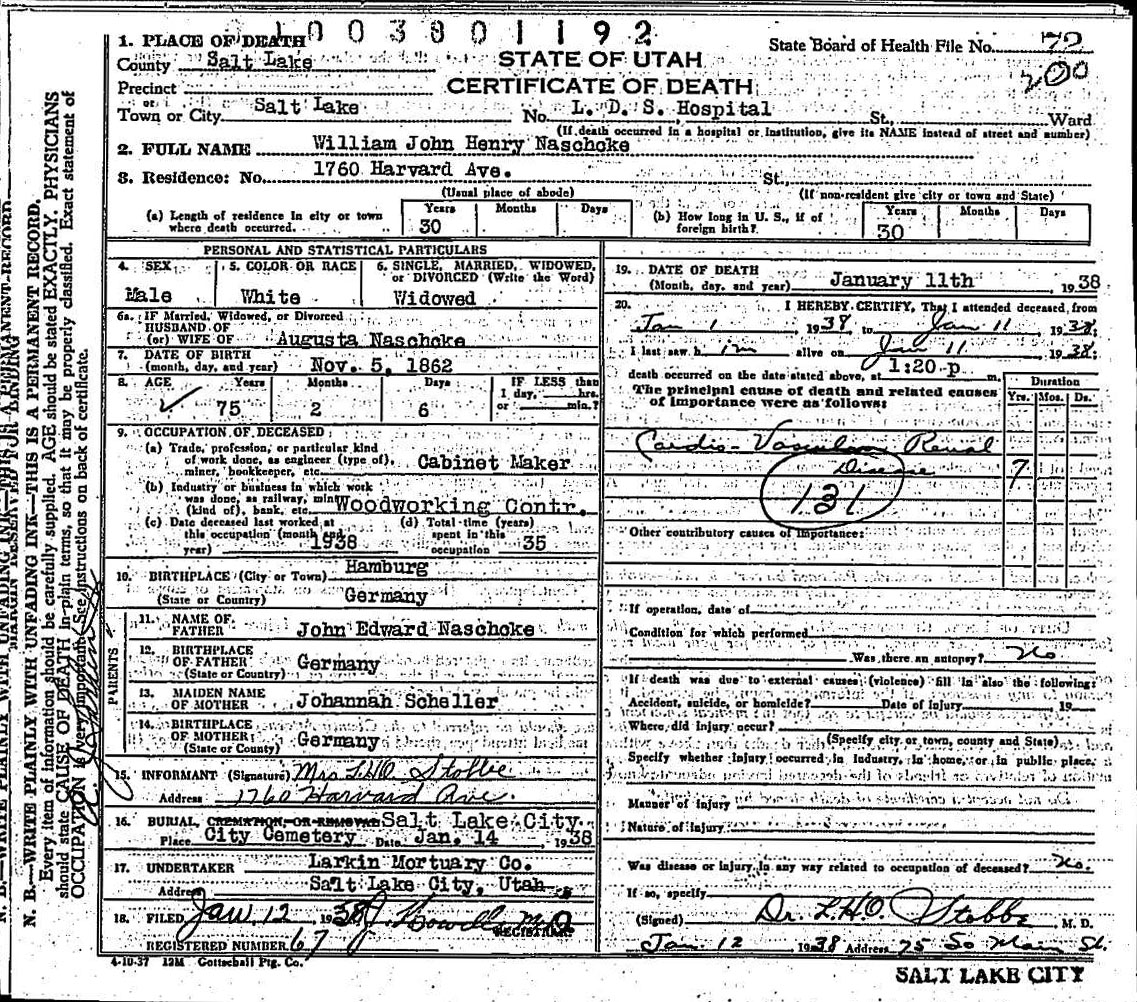 1003801192
1. PLACE OF DEATH
County Salt Lake
STATE OF UTAH
State Board of Health File No. 72
200
Precinct
CERTIFICATE OF DEATH
or
Town or City Salt Lake No. L. D. S. Hospital St., Ward
(If death occurred in a hospital or institution, give its NAME instead of street and number)
2. FULL NAME William John Henry Naschoke
3. Residence: No. 1760 Harvard Ave. St.,
(Usual place of abode) (If non-resident give city or town and State)
(a) Length of residence in city or town where death occurred. Years 30 Months Days
(b) How long in U. S., if of foreign birth? Years 30 Months Days
PERSONAL AND STATISTICAL PARTICULARS
4. SEX Male
5. COLOR OR RACE White
6. SINGLE, MARRIED, WIDOWED, or DIVORCED (Write the Word) Widowed
6a. IF Married, Widowed, or Divorced
HUSBAND OF
(or) WIFE OF Augusta Naschoke
7. DATE OF BIRTH
(month, day, and year) Nov. 5, 1862
8. AGE Years 75 Months 2 Days 6 IF LESS than 1 day, hrs. or min.?
9. OCCUPATION OF DECEASED
(a) Trade, profession, or particular kind
of work done, as engineer (type of),
miner, bookkeeper, etc. Cabinet Maker
(b) Industry or business in which work
was done, as railway, mine
(kind of), bank, etc. Woodworking Contr.
(c) Date deceased last worked at this occupation (month and year) 1938
(d) Total time (years) spent in this occupation 35
10. BIRTHPLACE (City or Town) Hamburg
(State or Country) Germany
PARENTS
11. NAME OF FATHER John Edward Naschoke
12. BIRTHPLACE OF FATHER (State or Country) Germany
13. MAIDEN NAME OF MOTHER Johannah Scheller
14. BIRTHPLACE OF MOTHER (State or County) Germany
15. INFORMANT (Signature) Mrs L.H.O. Stobbe
Address 1760 Harvard Ave.
16. BURIAL, CREMATION, OR REMOVAL Salt Lake City
Place City Cemetery Date Jan. 14, 1938
17. UNDERTAKER Larkin Mortuary Co.
Address Salt Lake City, Utah
18. FILED Jan 12 1938 M.D.
REGISTRAR
REGISTERED NUMBER 67
4-10-37 12M Gottschall Ptg. Co.
19. DATE OF DEATH
(Month, day, and year) January 11th, 1938
20. I HEREBY CERTIFY, That I attended deceased from
Jan 1 1938, to Jan 11 1938;
I last saw him alive on Jan 11 1938;
death occurred on the date stated above, at 1:20 p m.
The principal cause of death and related causes
of importance were as follows:
Duration
Yrs. Mos. Ds.
Cardio-Vascular Renal
Disease 7
131
Other contributory causes of importance:
If operation, date of
Condition for which performed
Was there an autopsy? No
If death was due to external causes (violence) fill in also the following:
Accident, suicide, or homicide? Date of injury 19
Where did injury occur?
(Specify city or town, county and State)
Specify whether injury occurred in industry, in home, or in public place.
Manner of injury
Nature of injury
Was disease or injury in any way related to occupation of deceased? No.
If so, specify
(Signed) Dr. L.H.O. Stobbe M. D.
Jan. 12 1938 Address 75 So Main St.
SALT LAKE CITY
MARGIN RESERVED FOR BINDING
N. B.—WRITE PLAINLY WITH UNFADING INK—THIS IS A PERMANENT RECORD.
Every item of information should be carefully supplied. AGE should be stated EXACTLY. PHYSICIANS
should state CAUSE OF DEATH in plain terms, so that it may be properly classified. Exact statement of
OCCUPATION is very important. See instructions on back of certificate.